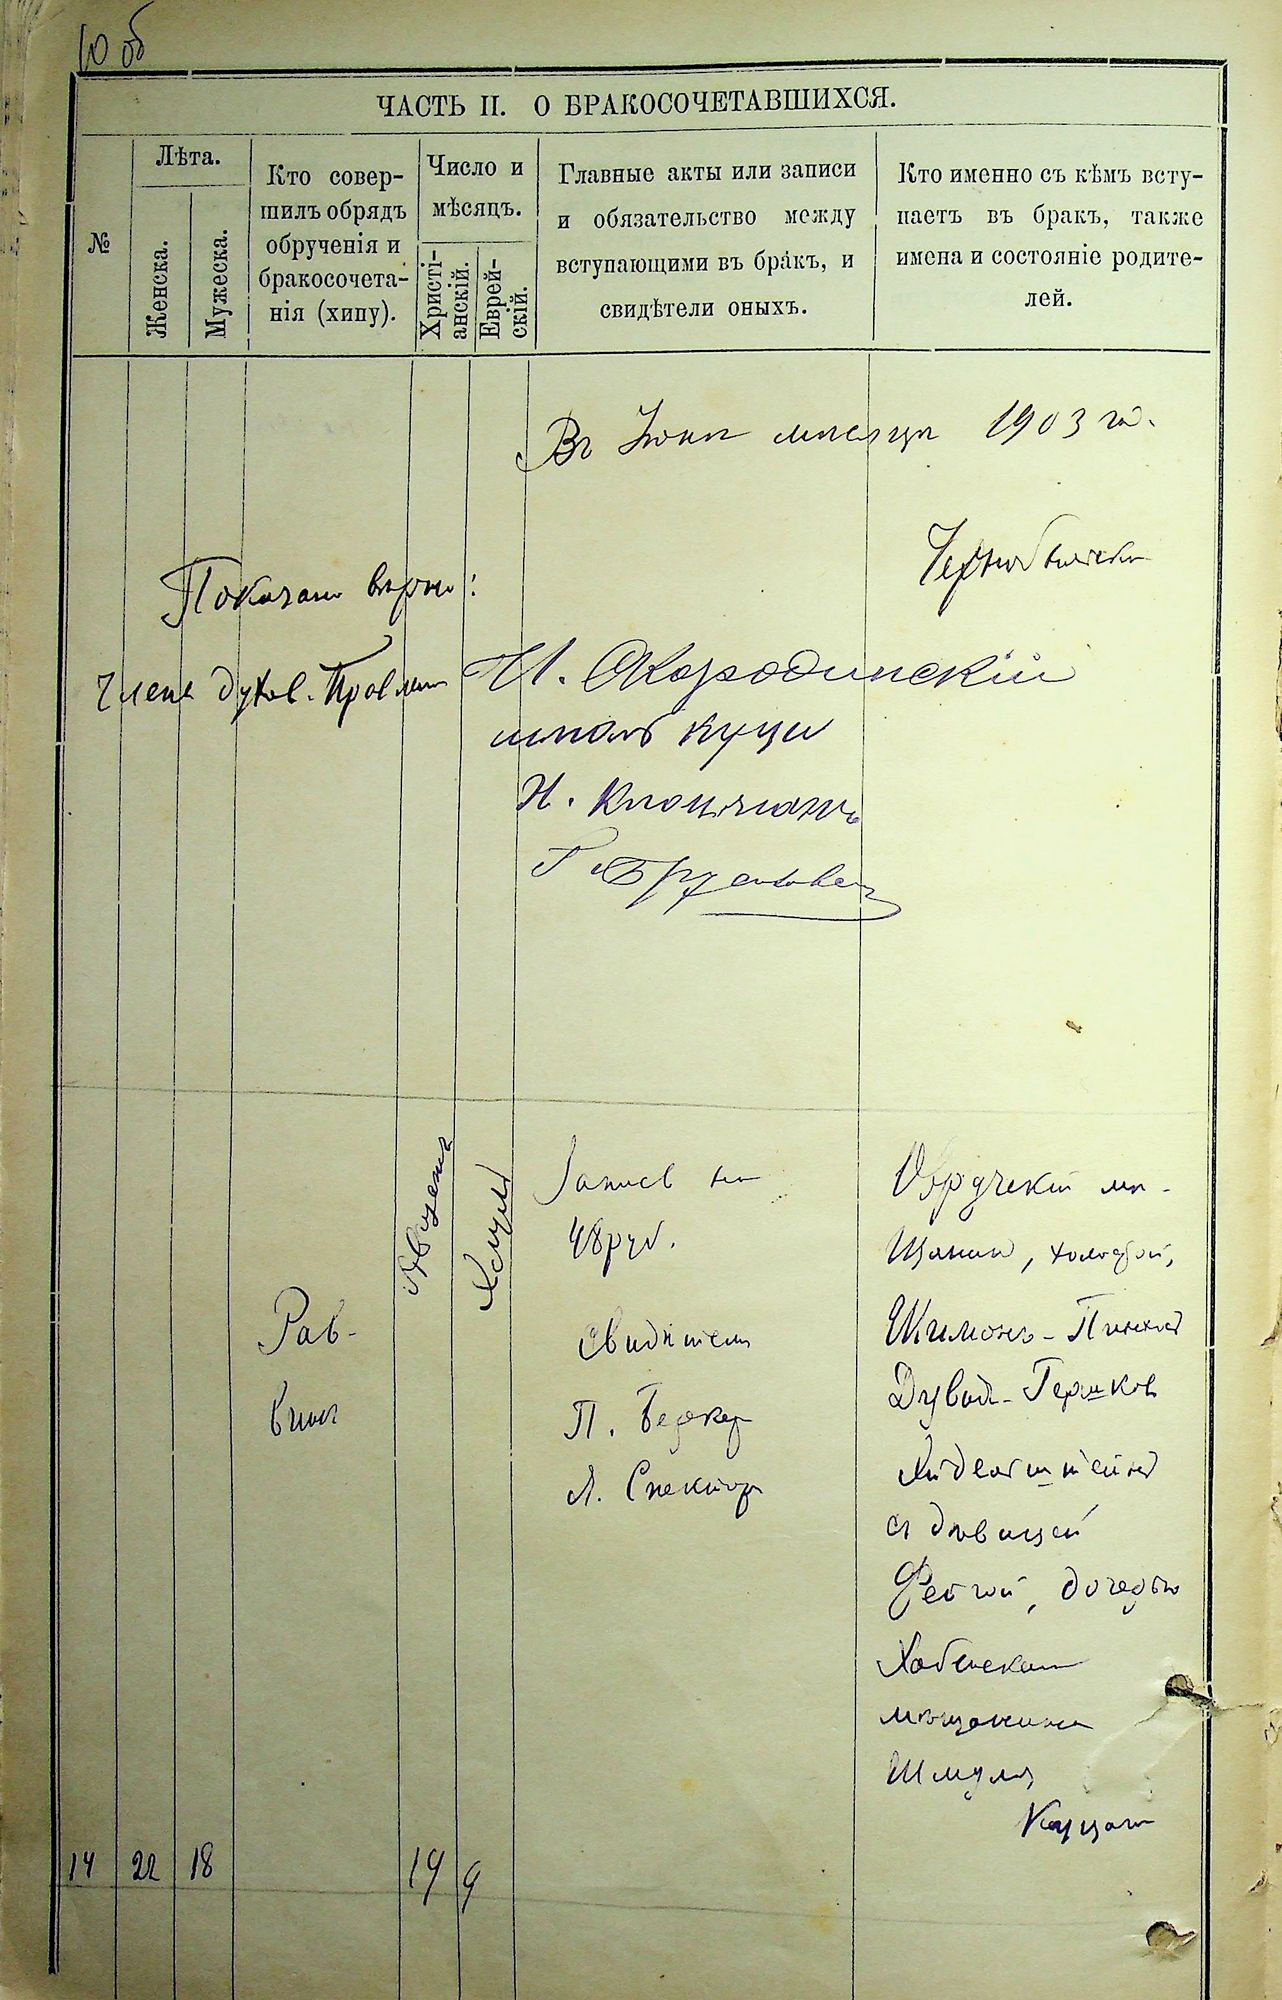 10 об
ЧАСТЬ II. О БРАКОСОЧЕТАВШИХСЯ.
№
Лѣта.
Женска.
Мужеска.
Кто совер-
шилъ обрядъ
обрученія и
бракосочета-
нія (хипу).
Число и
мѣсяцъ.
Христі-
анскій.
Еврей-
скій.
Главные акты или записи
и обязательство между
вступающими въ бракъ, и
свидѣтели оныхъ.
Кто именно съ кѣмъ всту-
паетъ въ бракъ, также
имена и состояніе родите-
лей.
Въ мѣсяцѣ 1903 го.
Показано вѣрно:
Члены духов. Правлен
И. Скородинскій
Куцы
Н. Клоцманъ
Г.
14
22
18
Рав-
винъ
Августъ
19
9
Запись на
48 руб.
Свидѣтели
П. Беркер
Л. Спектор
Овручскій мѣ-
щанин, холостой,
Шимонъ-Пинхас
Дувид-Гершков
с дѣвицей
Фейгой, дочерью
Хабенскаго
мѣщанина
Шмуля